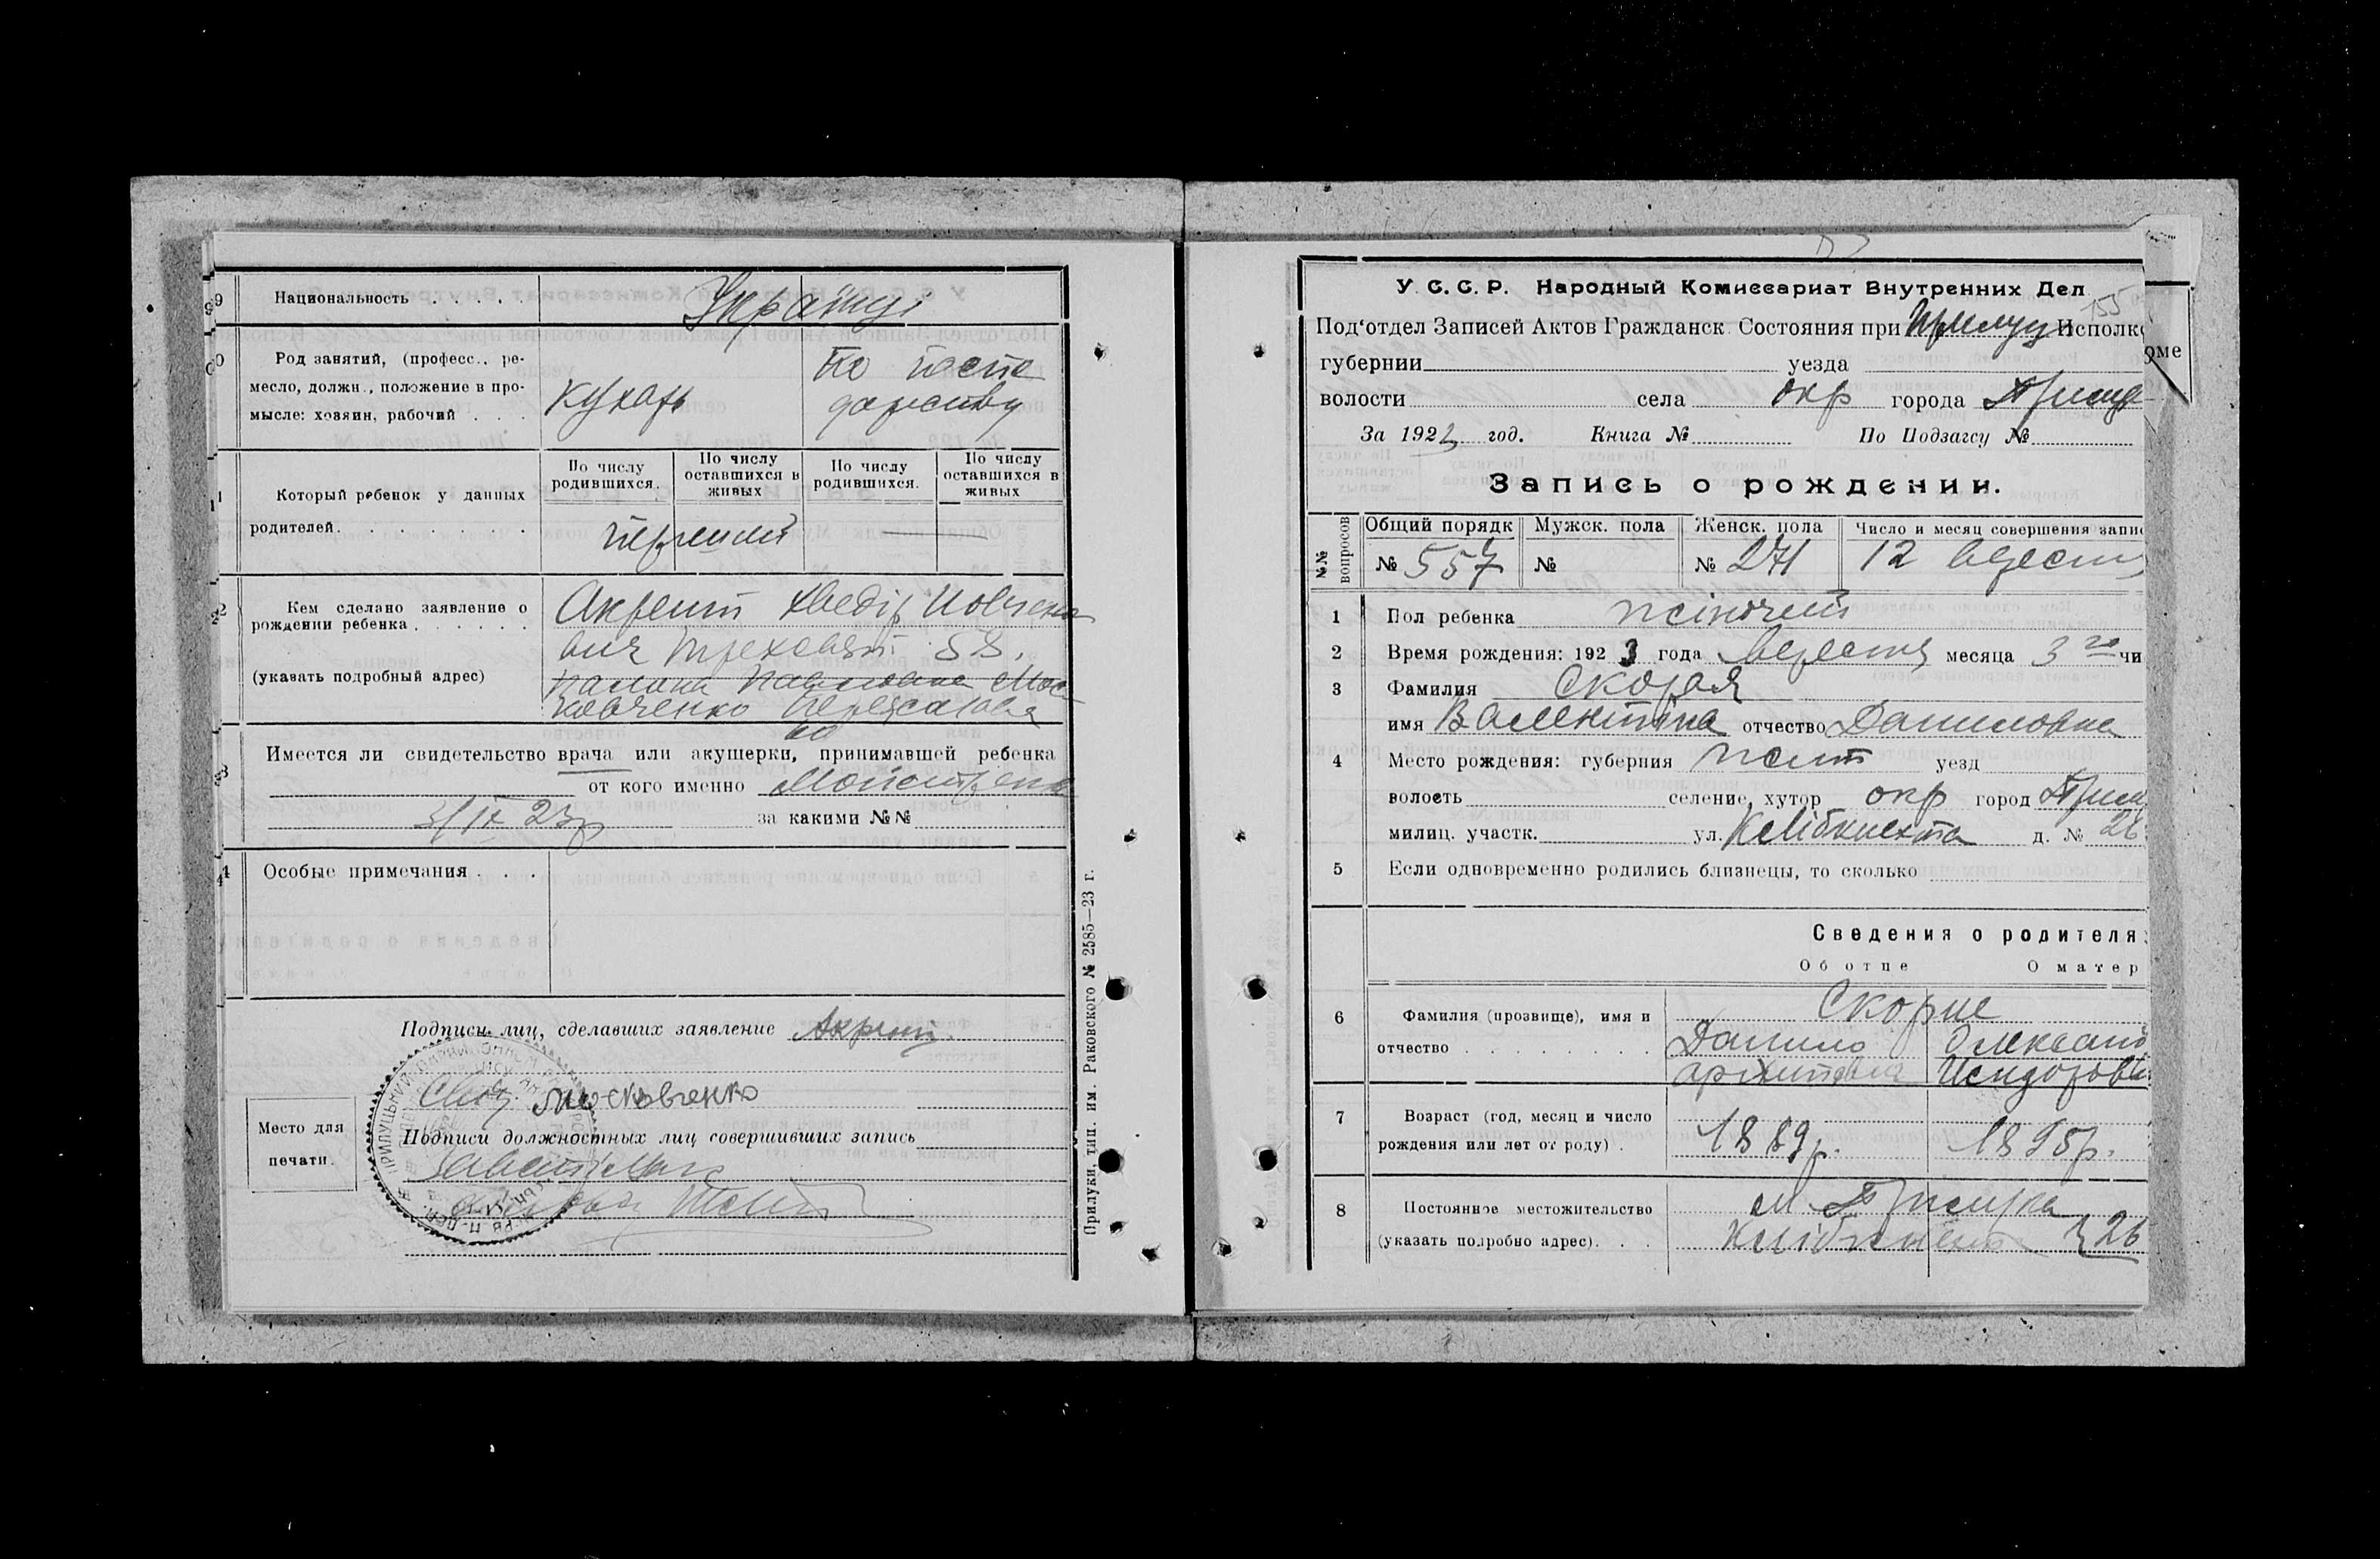 9 Национальность . . . . . Українці
0 Род занятий, (професс., ре-
месло, должн., положение в про-
мысле: хозяин, рабочий . . .
кухарь
по госпо
дарству
1 Который ребенок у данных
родителей. . . . . . . .
По числу родившихся.
По числу оставшихся в живых
По числу родившихся.
По числу оставшихся в живых
перший
2 Кем сделано заявление о
рождении ребенка . . . . . .
(указать подробный адрес)
Акрешт
58.
Мос
ковченко
3 Имеется ли свидетельство врача или акушерки, принимавшей ребенка
от кого именно
3/IX 23р за какими №№
4 Особые примечания . . .
Подписи лиц, сделавших заявление Акрешт
Московченко
Место для
печати.
Подписи должностных лиц совершивших запись
Прилуки, тип. им. Раковского № 2585—23 г.
155
У. С. С. Р. Народный Комиссариат Внутренних Дел
Под‘отдел Записей Актов Гражданск. Состояния при Прилуц Исполк
оме
губернии уезда
волости села окр города
За 1923 год. Книга № По Подзагсу №
Запись о рождении.
№№ вопросов
Общий порядк Мужск. пола Женск. пола Число и месяц совершения запис
№ 557 № № 271 12 вересня
1 Пол ребенка жіночий
2 Время рождения: 1923 года вересня месяца 3 го чи
3 Фамилия Скорая
имя Валентіна отчество Даниловна
4 Место рождения: губерния уезд
волость селение, хутор окр город Прил
милиц. участк. ул. К Лібкнехта д. № 26
5 Если одновременно родились близнецы, то сколько
Сведения о родителя
Об отце О матер
6 Фамилия (прозвище), имя и
отчество . . . . . . . .
Скорые
Данило Олександ
Архипович Исидоровн
7 Возраст (год, месяц и число
рождения или лет от роду) .
1889р. 1895р.
8 Постоянное местожительство
(указать подробно адрес). . .
м. Прилука
Клібкнехта 26